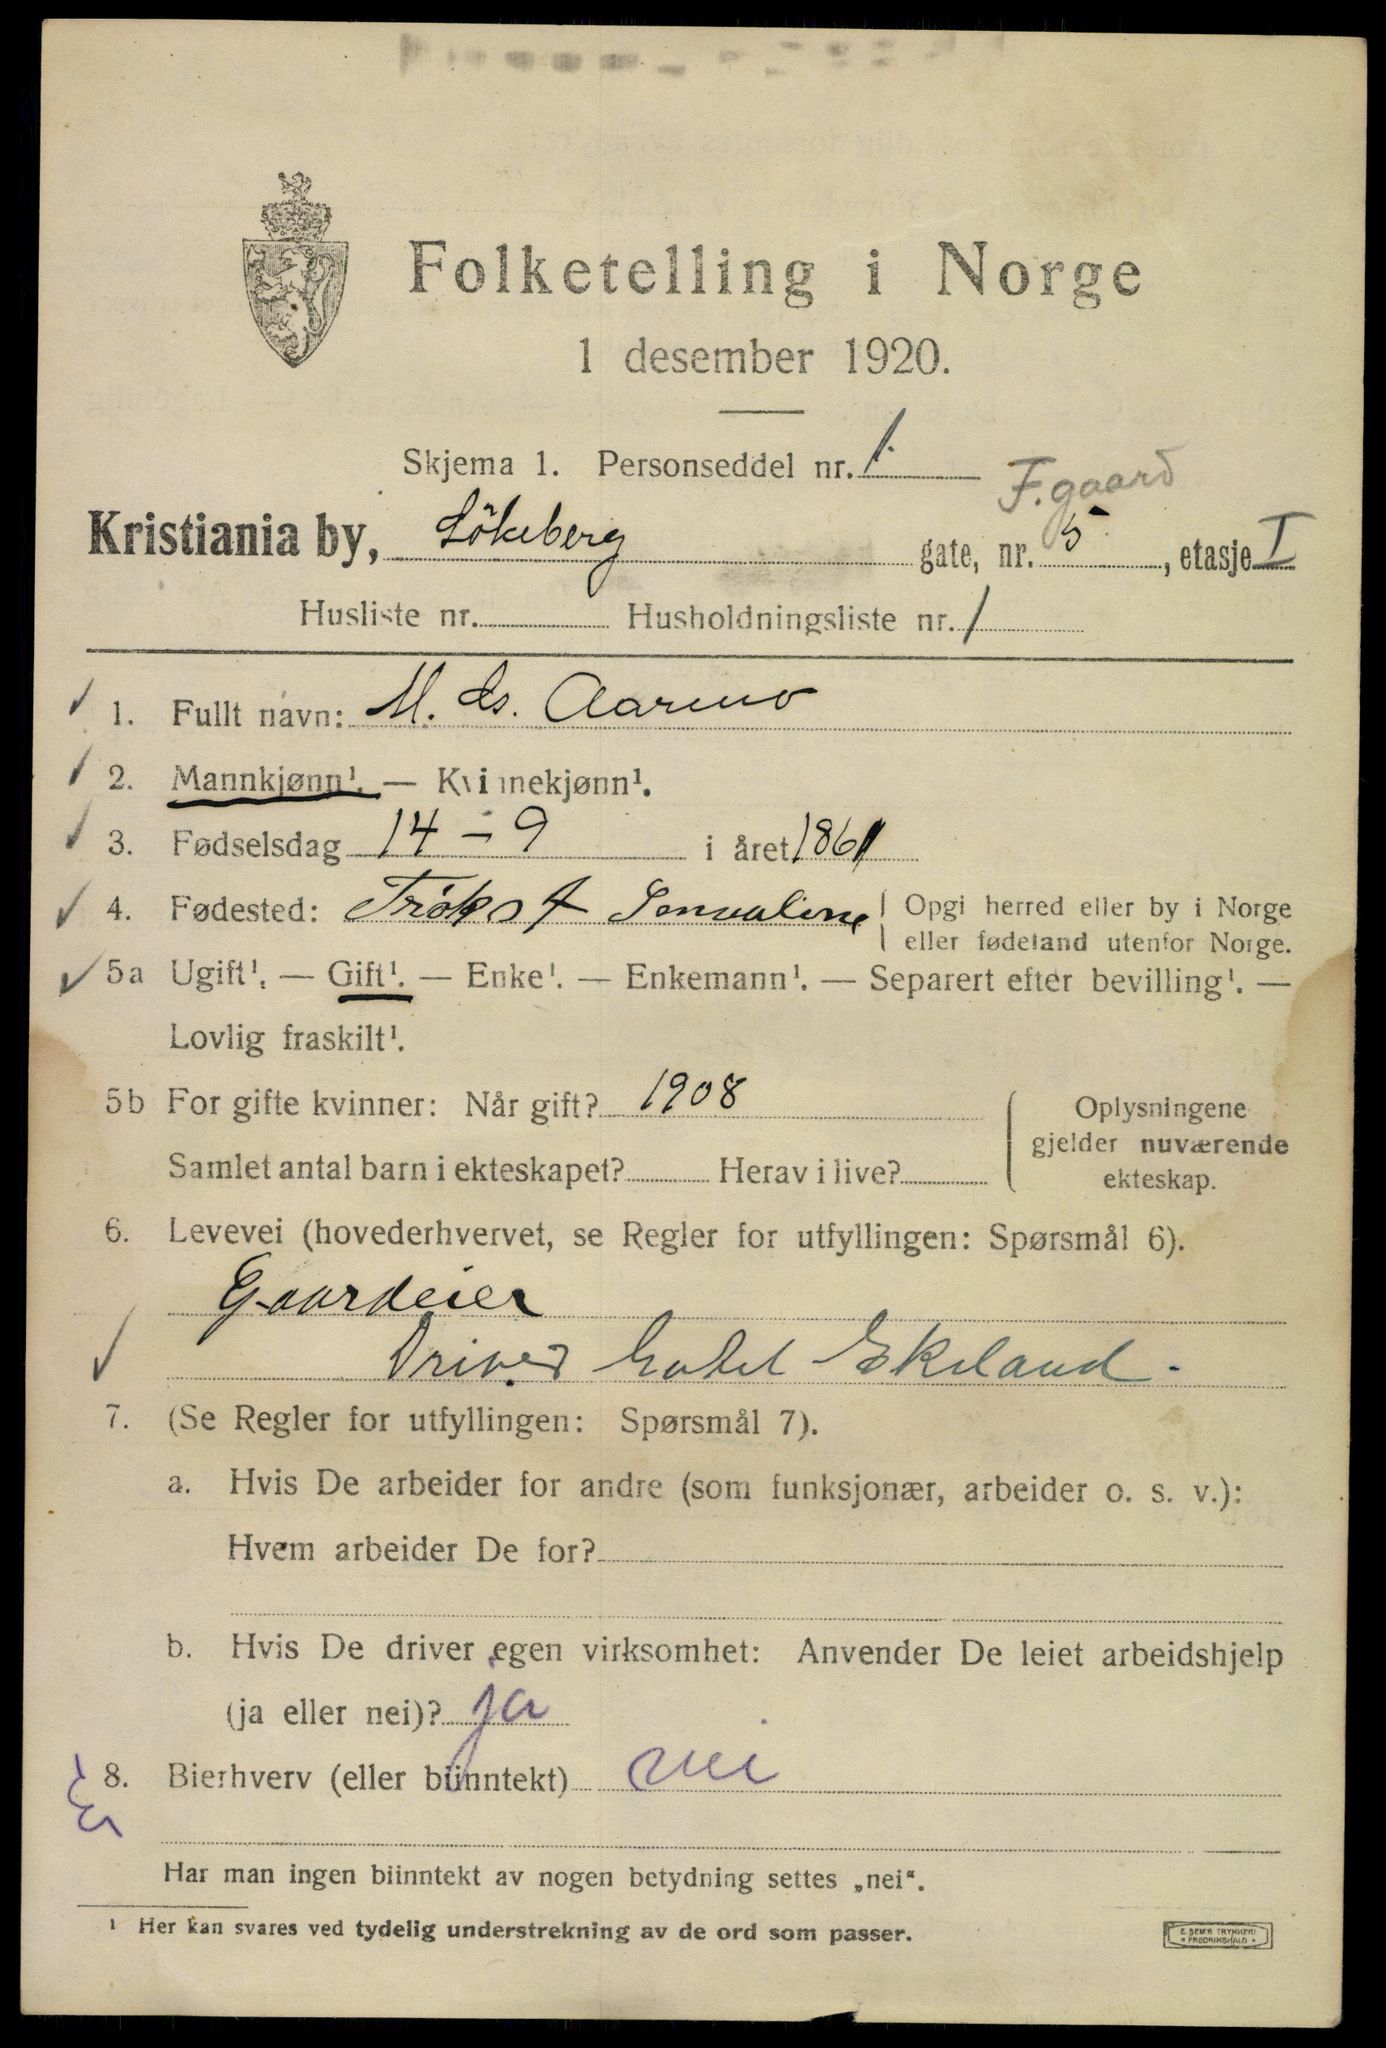 Folketelling i Norge
1 desember 1920.
Skjema 1. Personseddel nr. 1.
F.gaard
Kristiania by, Lökeberg gate, nr. 5, etasje I
Husliste nr. Husholdningsliste nr. 1
1. Fullt navn: M. Aarmo
2. Mannkjønn¹. — Kvinnekjønn¹.
3. Fødselsdag 14 – 9 i året 1861
4. Fødested: Trökst { Opgi herred eller by i Norge
eller fødeland utenfor Norge.
5a Ugift¹. — Gift¹. — Enke¹. — Enkemann¹. — Separert efter bevilling¹. —
Lovlig fraskilt¹.
5b For gifte kvinner: Når gift? 1908
Samlet antal barn i ekteskapet? Herav i live?
Oplysningene
gjelder nuværende
ekteskap.
6. Levevei (hovederhvervet, se Regler for utfyllingen: Spørsmål 6).
Gaardeier
Driver Hotel Ekeland.
7. (Se Regler for utfyllingen: Spørsmål 7).
a. Hvis De arbeider for andre (som funksjonær, arbeider o. s. v.):
Hvem arbeider De for?
b. Hvis De driver egen virksomhet: Anvender De leiet arbeidshjelp
(ja eller nei)? ja
8. Bierhverv (eller biinntekt) nei
Har man ingen biinntekt av nogen betydning settes „nei“.
¹ Her kan svares ved tydelig understrekning av de ord som passer.
E. SEM'S TRYKKERI
FREDRIKSHALD